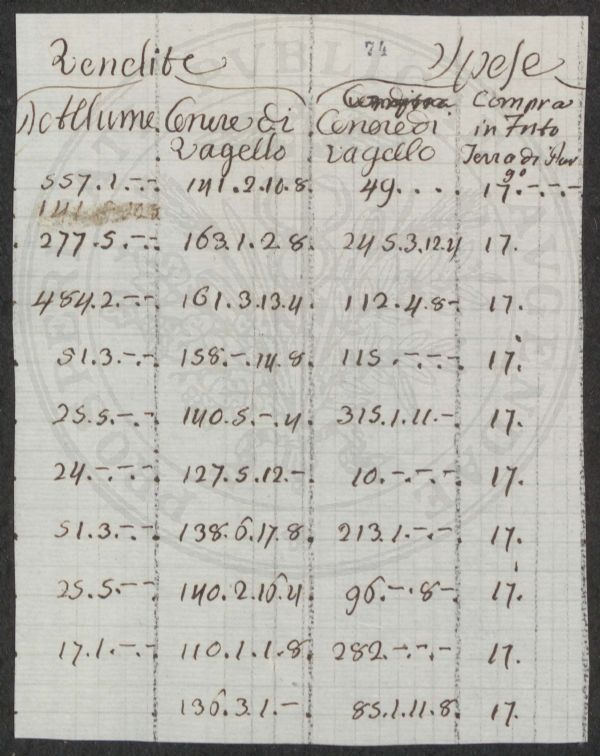 Rendite 74 Spese
Compra
Allume Cenere di Cenere di in Tuto
Vagello Vagello Terra di
557.1.-.- 141.2.10.8 49.... 17.-.-.-
277.5.-.- 163.1.2.8. 245.3.12.4 17.
484.2.-.- 161.3.13.4. 112.4.8- 17.
51.3.-.- 158.-.14.8. 115.-.-.- 17.
25.5.-.- 140.5.-.4. 315.1.11.- 17.
24.-.-.- 127.5.12.- 10.-.-.- 17.
51.3.-.- 138.6.17.8 213.1.-.- 17.
25.5.-- 140.2.16.4. 96.-.8-. 17.
17.1.-.- 110.1.1.8. 282.-.-.- 17.
136.3.1.- 85.1.11.8. 17.